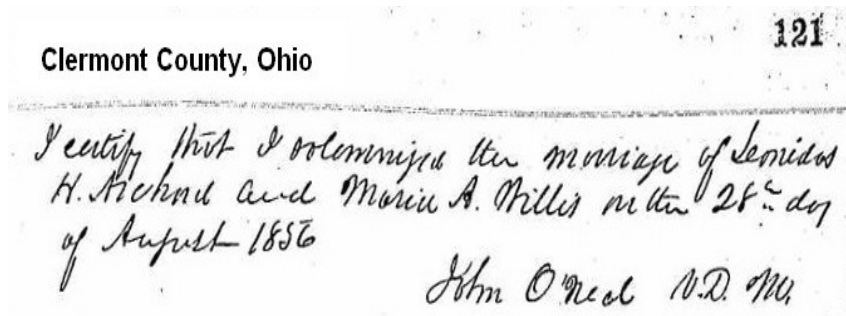 121
Clermont County, Ohio
I certify that I solemnized the marriage of Leonidas
H. and Maria A. Willis on the 28th day
of August 1856
John O'Neal V.D.M.